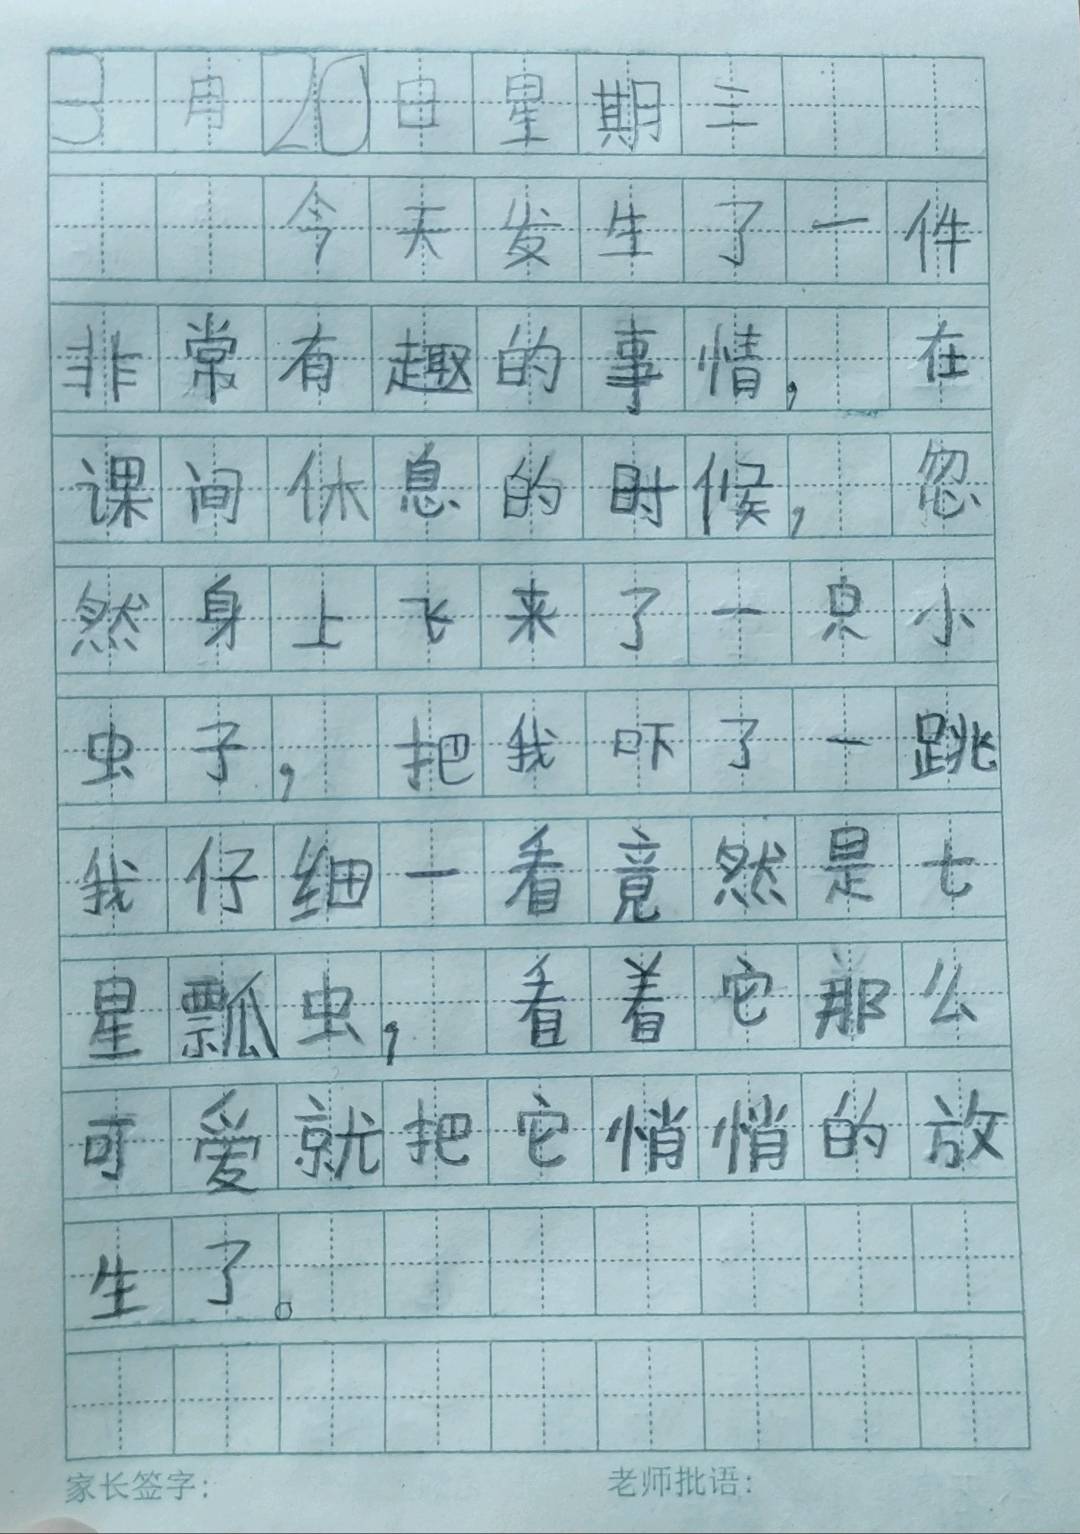 3月20日星期三
今天发生了一件
非常有趣的事情,在
课间休息的时候,忽
然身上飞来了一只小
虫子,把我吓了一跳
我仔细一看竟然是七
星瓢虫,看着它那么
可爱就把它悄悄的放
生了。
家长签字: 老师批语: